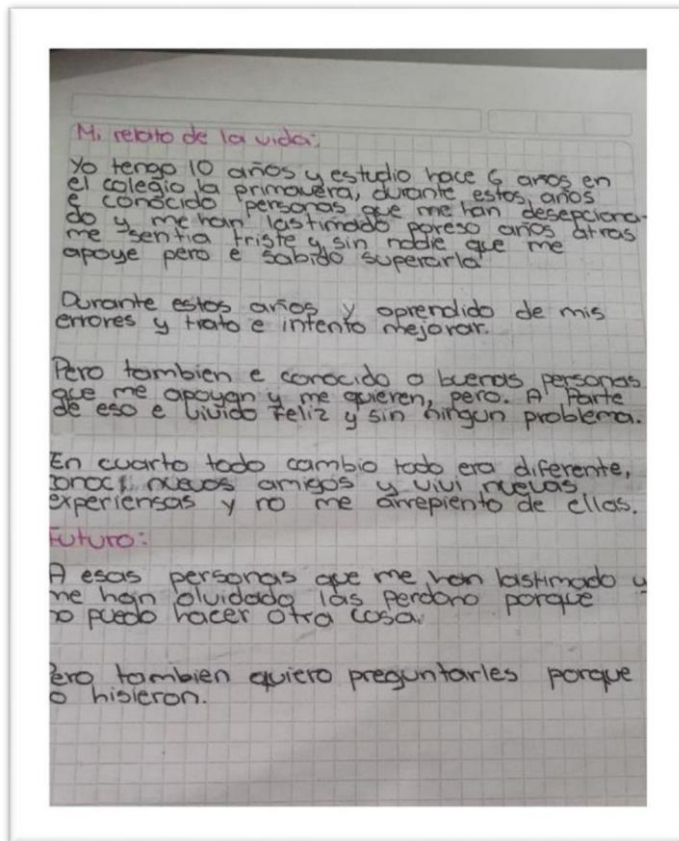 Mi relato de la vida:
Yo tengo 10 años y estudio hace 6 años en
el colegio la primavera, durante estos años
e conocido personas que me han desepciona-
do y me han lastimado poreso años atras
me sentia triste y sin nadie que me
apoye pero e sabido superarla
Durante estos años y aprendido de mis
errores y trato e intento mejorar.
Pero tambien e conocido a buenas personas
que me apoyan y me quieren, pero. A Parte
de eso e vivido feliz y sin ningun problema.
En cuarto todo cambio todo era diferente,
conoci nuevos amigos y vivi nuevas
experiensas y no me arrepiento de ellas.
Futuro:
A esas personas que me han lastimado y
me han olvidado las perdono porque
no puedo hacer otra cosa.
Pero tambien quiero preguntarles porque
lo hisieron.